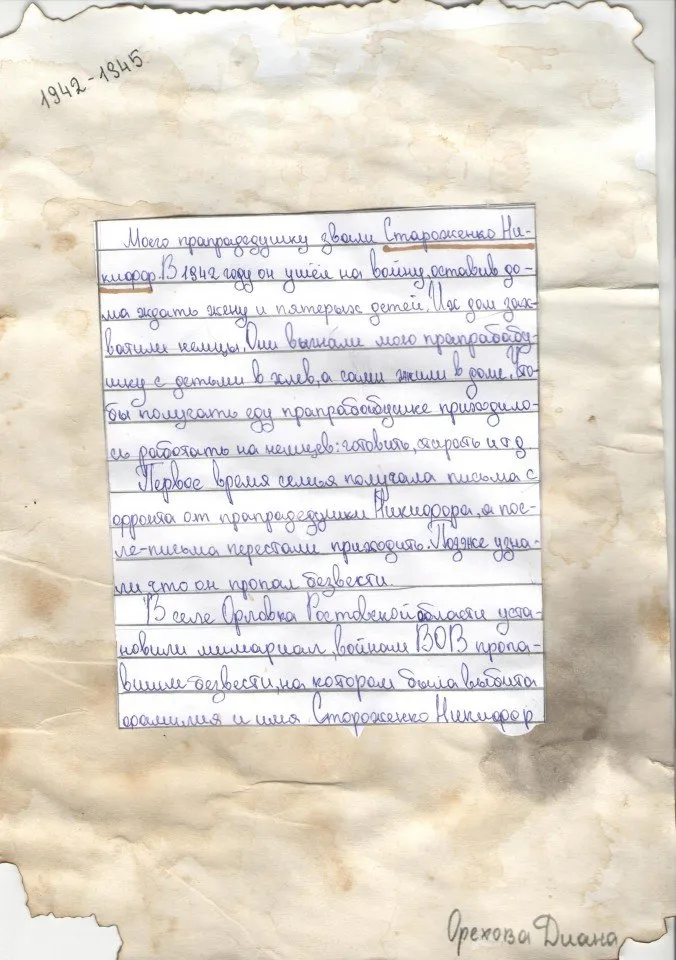 1942-1945
Моего прапрадедушку звали Староженко Ни-
кифор. В 1942 году он ушёл на войну, оставив до-
ма ждать жену и пятерых детей. Их дом зах-
ватили немцы. Они выгнали мою прапрабабу-
шку с детьми в хлев, а сами жили в доме. Что-
бы получать еду прапрабабушке приходило-
сь работать на немцев: готовить, стирать и т д.
Первое время семья получала письма с
фронта от прапрадедушки Никифора, а пос-
ле-письма перестали приходить. Позже узна-
ли что он пропал безвести.
В селе Орловка Ростовской области уста-
новили мимариал, войнам ВОВ пропа-
вшим безвести, на котором была выбита
фамилия и имя Стороженко Никифор
Орехова Диана